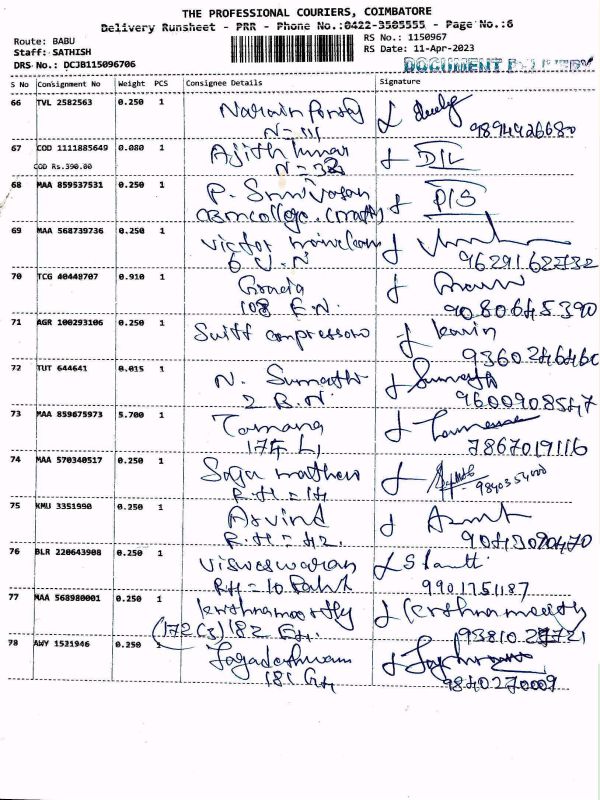 THE PROFESSIONAL COURIERS, COIMBATORE
Delivery Runsheet - PRR - Phone No.:0422-3505555 - Page No.:6
Route: BABU RS No.: 1150967
Staff: SATHISH RS Date: 11-Apr-2023
DRS No.: DCJB115096706 DOCUMENT DELIVERY
S No Consignment No Weight PCS Consignee Details Signature
66 TVL 2582563 0.250 1
9894426680
67 COD 1111885649 0.080 1 Ajith kumar
COD Rs.390.00
68 MAA 859537531 0.250 1 P. Srinivasan
69 MAA 568739736 0.250 1 Victor
9629162732
70 TCG 40448707 0.910 1 Gracia
108 E.N. 9080645390
71 AGR 100293106 0.250 1 Swift compressor Kavin
9360246460
72 TUT 644641 0.015 1 N. Sumathi Sumathi
2 B.N. 9600908547
73 MAA 859675973 5.700 1 Tamana
7867019116
74 MAA 570340517 0.250 1 Saga mathew
R.H = 14
75 KMU 3351990 0.250 1 Arvind
R.H = 42. 9045090470
76 BLR 220643908 0.250 1 Visweswaran
9901751187
77 MAA 568980001 0.250 1 Krishnamoorthy Krishnamoorthy
78 AWY 1521946 0.250 1
9840270009